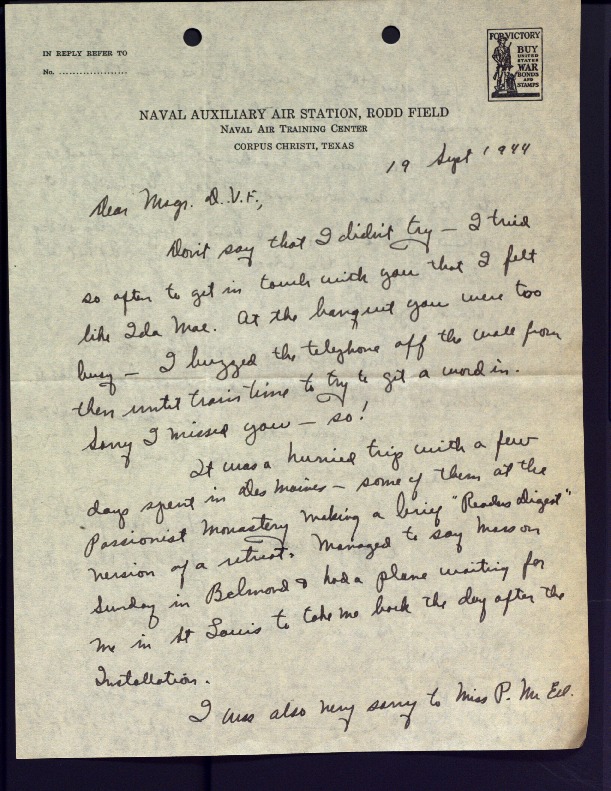 IN REPLY REFER TO
No. ....................
FOR VICTORY
BUY
UNITED
STATES
WAR
BONDS
AND
STAMPS
NAVAL AUXILIARY AIR STATION, RODD FIELD
NAVAL AIR TRAINING CENTER
CORPUS CHRISTI, TEXAS
19 Sept 1944
Dear Msgr. D.V.F.,
Don't say that I didn't try — I tried
so often to get in touch with you that I felt
like Ida Mae. At the banquet you were too
busy — I buzzed the telephone off the wall from
then until train time to try to get a word in.
Sorry I missed you — so!
It was a hurried trip with a few
days spent in Des Moines — some of them at the
Passionist Monastery making a brief "Readers Digest"
version of a retreat. Managed to say Mass on
Sunday in Belmond & had a plane waiting for
me in St Louis to take me back the day after the
Installation.
I was also very sorry to Miss P. Mc Ell.